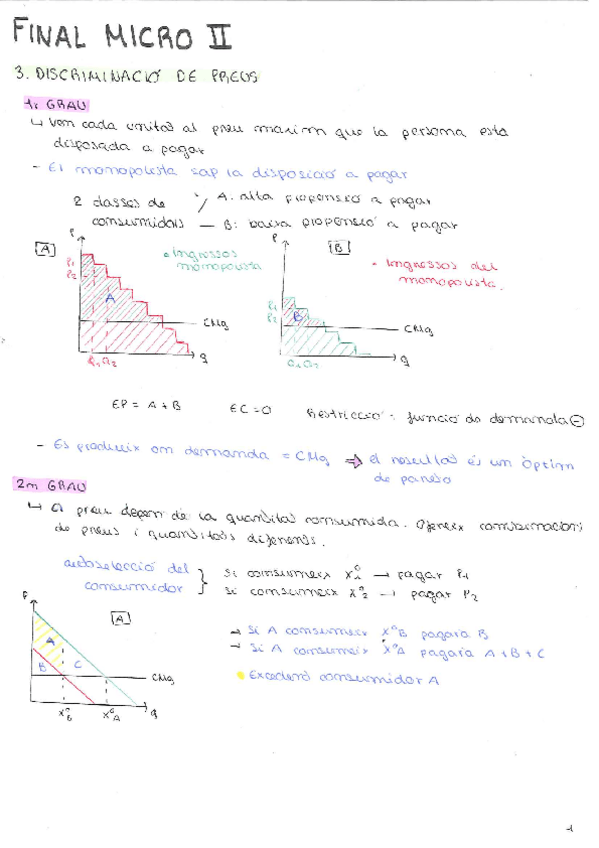 FINAL MICRO II
3. DISCRIMINACIÓ DE PREUS
1r GRAU
↳ Ven cada unitat al preu maxim que la persona està
disposada a pagar
- El monopolista sap la disposició a pagar
2 classes de A: alta propensió a pagar
consumidors — B: baixa propensió a pagar
P
A
• Ingressos
monopolista
P1
P2
A
CMg
Q1 Q2
q
P
B
• Ingressos del
monopolista.
P1
P2
B
CMg
Q1 Q2
q
EP = A + B EC = 0 Restricció: funció de demanda ⊖
- Es produeix on demanda = CMg ⇒ el resultat és un òptim
de pareto
2n GRAU
↳ El preu depen de la quantitat consumida. Ofereix combinacions
de preus i quantitats diferents.
autoselecció del
consumidor
si consumeix x₁⁰ → pagar P1
si consumeix x₂⁰ → pagar P2
P
A
A
B
C
CMg
x⁰B
x⁰A
q
→ Si A consumeix x⁰B pagarà B
→ Si A consumeix x⁰A pagarà A + B + C
• Excedent consumidor A
1